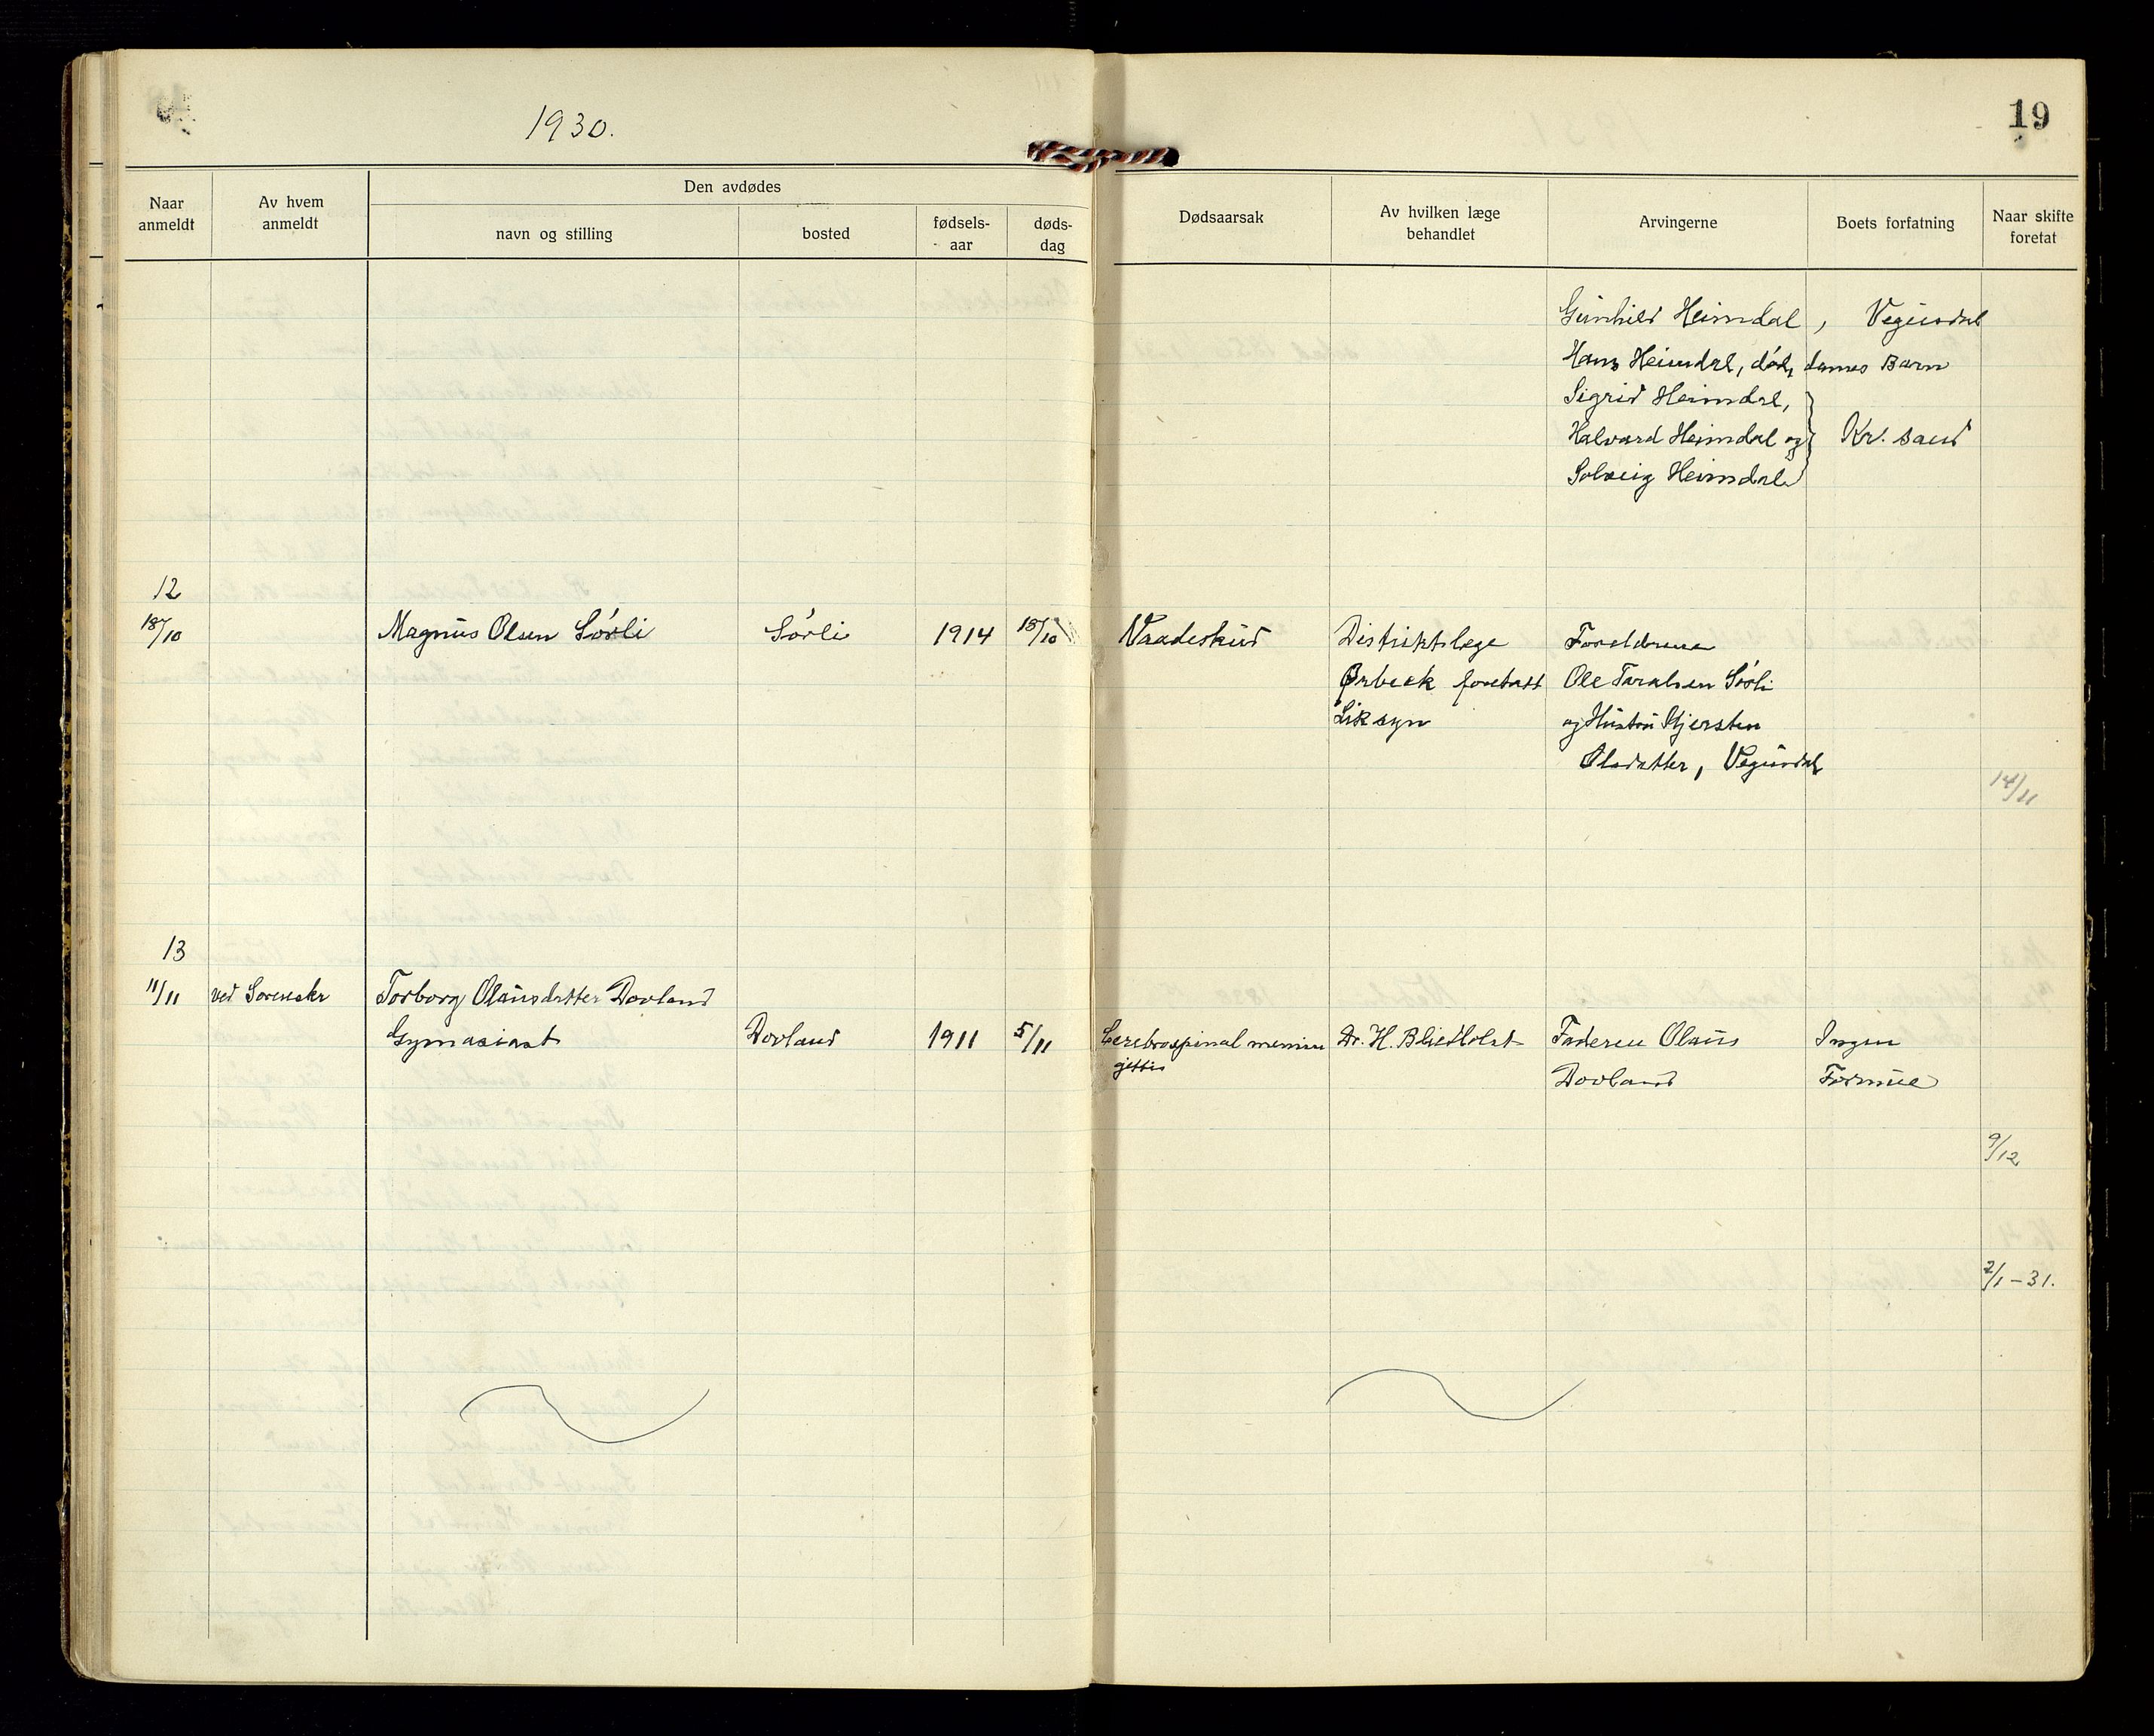 1930.
19
Naar anmeldt
Av hvem anmeldt
Den avdødes
navn og stilling
bosted
fødsels-aar
døds-dag
Dødsaarsak
Av hvilken læge behandlet
Arvingerne
Boets forfatning
Naar skifte foretat
Gunhild Heimdal, Vegusdal
Hans Heimdal, død, dennes Barn
Sigrid Heimdal,
Halvard Heimdal og } Kr.sand
Solveig Heimdal
12
18/10 Magnus Olsen Sørli Sørli 1914 18/10 Vaadeskud Distriktslæge Foreldrene
Ørbeck foretatt Ole Taralsen Sørli
Liksyn og Hustru Kjersten
Olsdatter, Vegusdal
14/11
13
11/11 ved Sorenskr Torborg Olausdatter Dovland
Gymnasiast Dovland 1911 5/11 Cerebrospinal menin Dr. H. Bliedholst Faderen Olaus Ingen
gittis Dovland Formue
9/12
2/1-31.